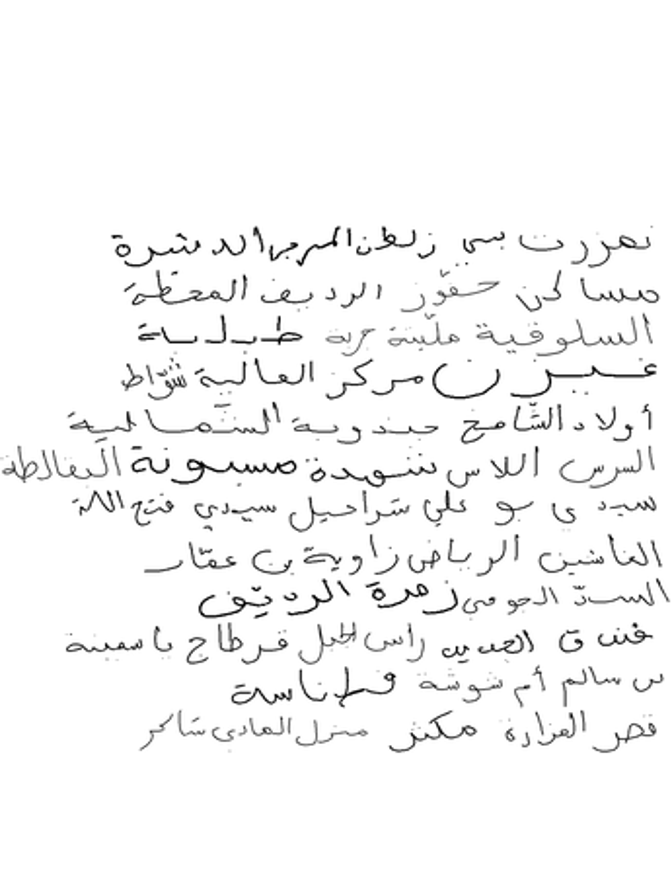 تمزرت بني زلطن المرجى الدشرة
مساكن حفّوز الرديف المحطّة
السلوقية مليتة جربة طبلبة
غيزن مركز العالية شوّاط
أولاد الشّامخ جندوبة الشّمالية
السرس اللاس شهدة مسيونة البقالطة
سيدي بو علي شراحيل سيدي فتح اللّه
الماشين الرياض زاوية بن عمّار
السدّ الجومين زمرة الرديّف
فندق الجديد راس الجبل قرطاج ياسمينة
بن سالم أم شوشة قطناسة
قصر المزارة مكثر منزل الهادي شاكر